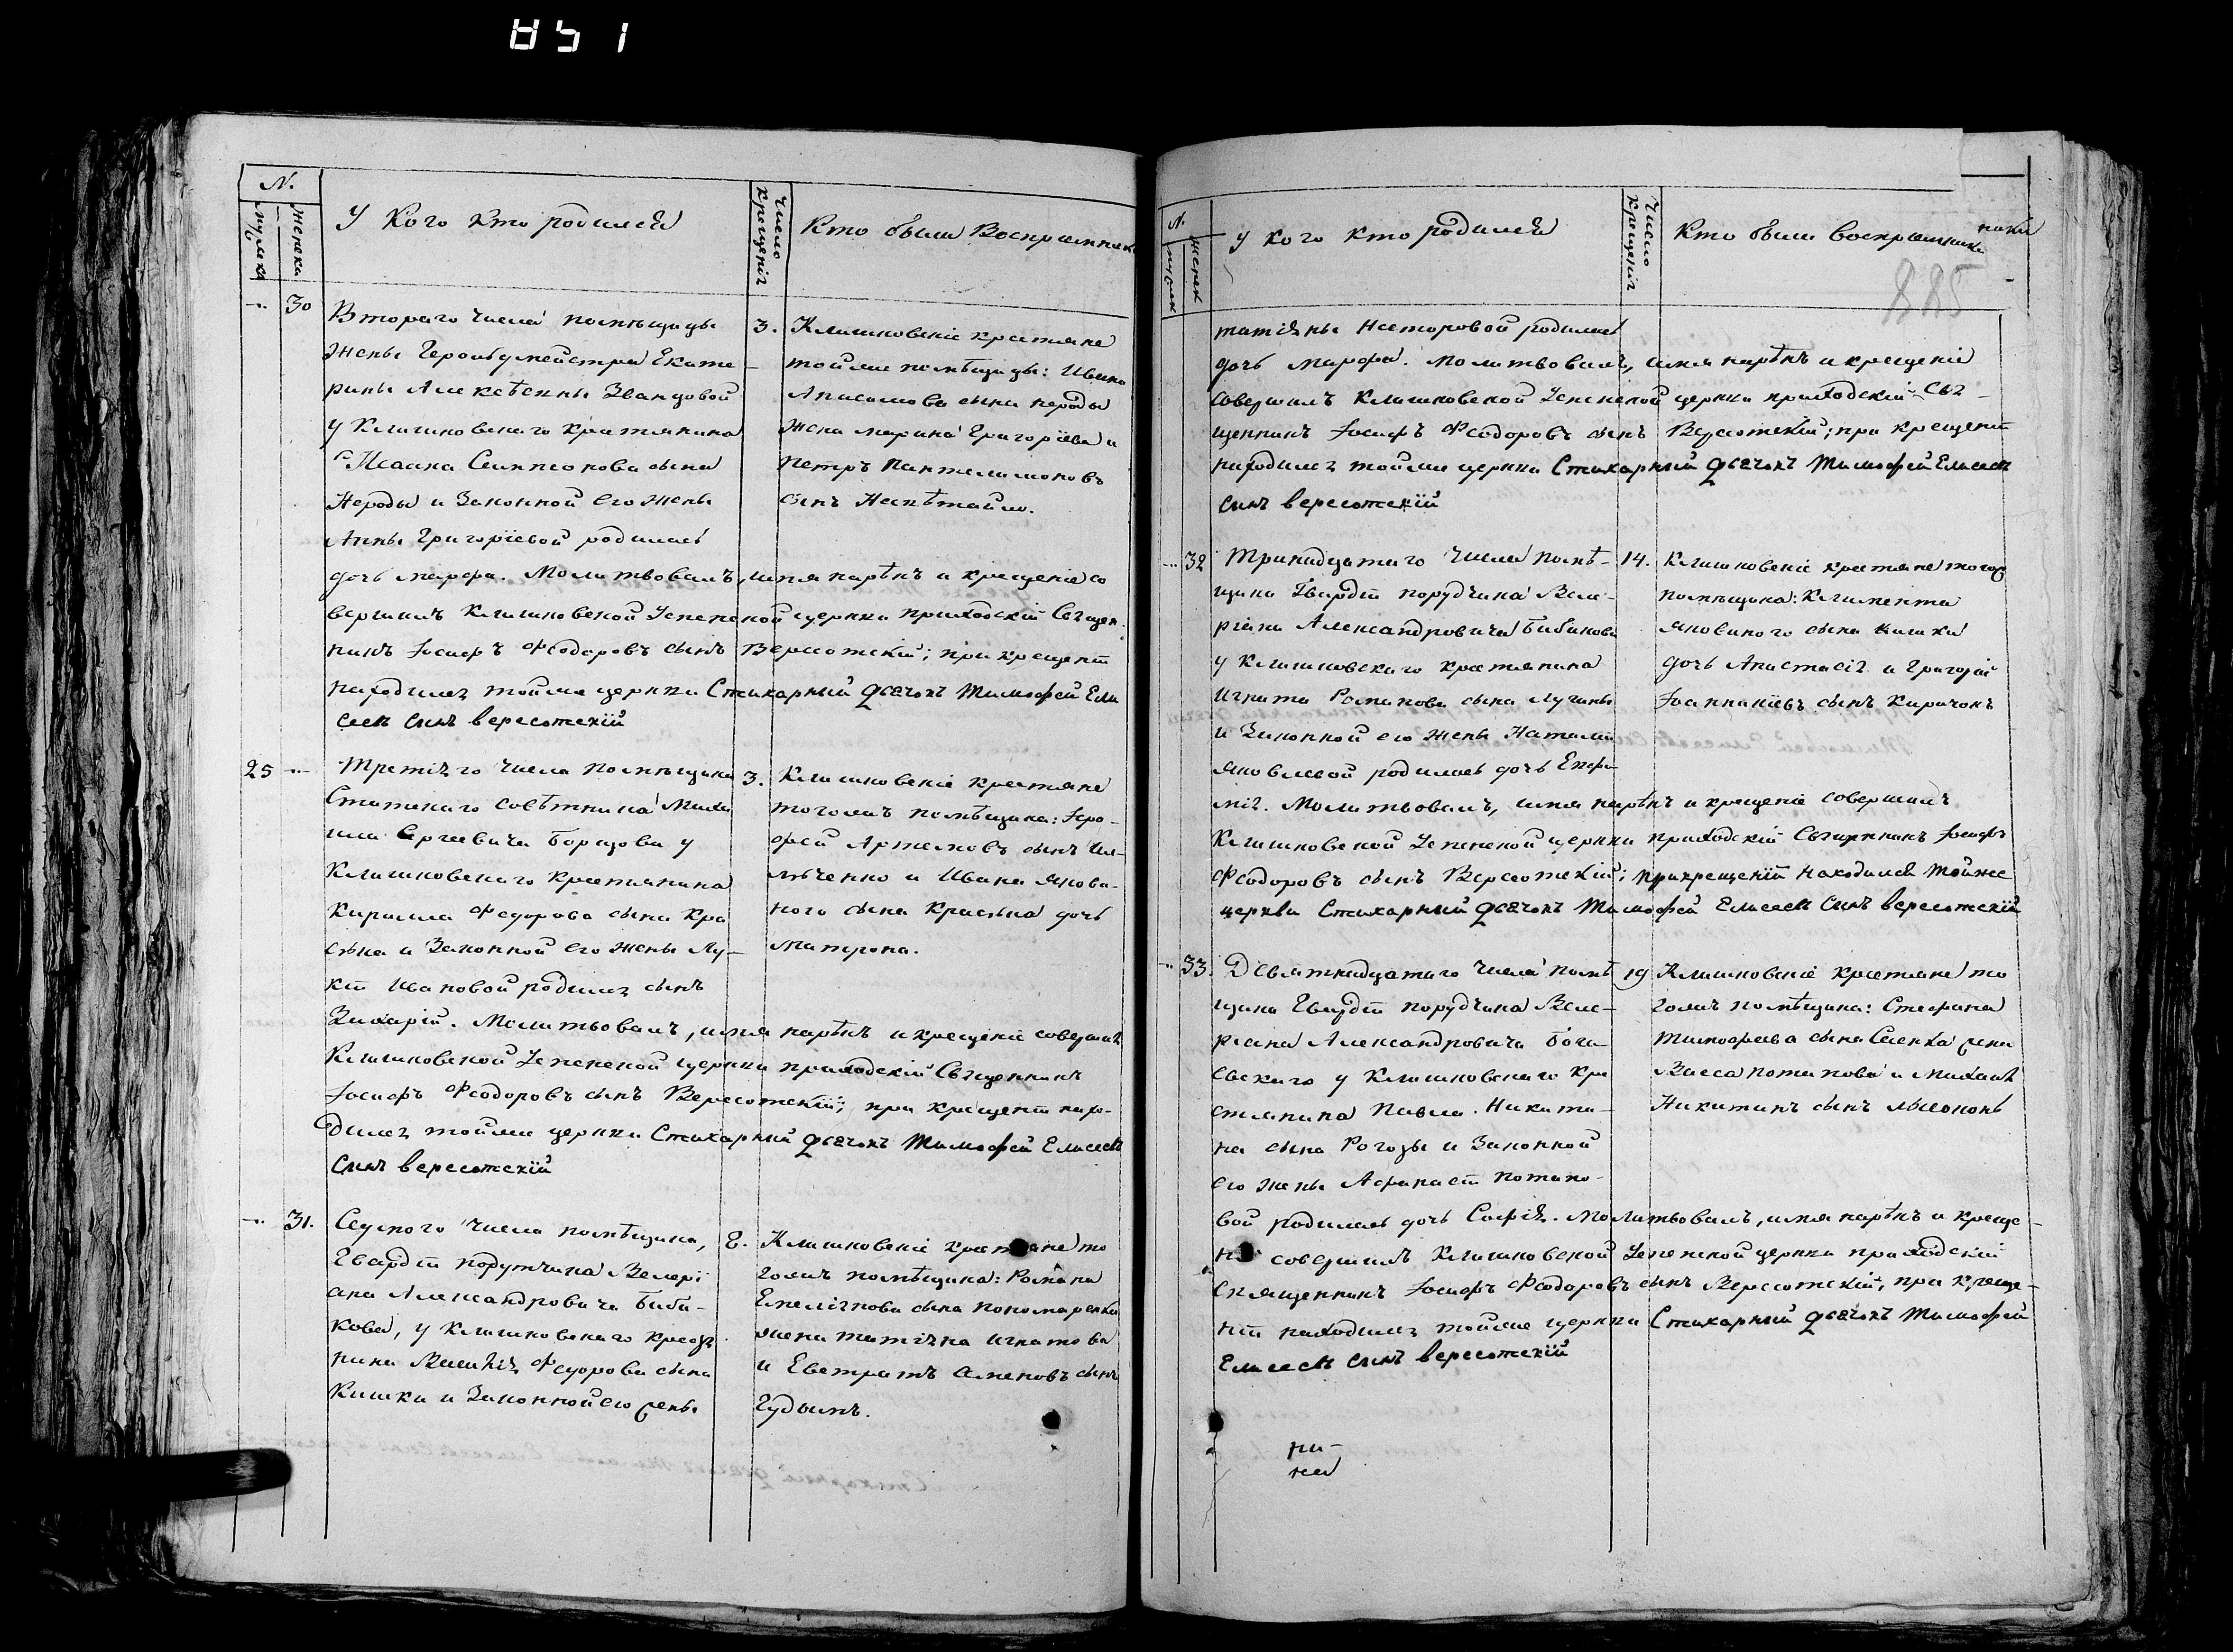 851
N.
Мужска
Женска
У Кого кто родился
Число Крещенія
Кто были Воспріемники
30
Втораго числа помѣщицы
Жены Герольдмейстра Екате
рины Алексѣевны Званцовой
у Клишковскаго крестянина
сына
Нероды и Законной его жены
Анны Григоріевой родилась
дочь марѳа. Молитвовалъ, имя нарѣкъ и крещеніе со
вершилъ Клишковской Успенской церкви приходскій Священ
никъ Іосифъ Феодоровъ сынъ Вересотскій; при крещеніи
находился тойже церкви Стихарный дьячокъ Тимофей Ели
сеевъ синъ вересотскій
3.
Клишковскіе крестяне
тойже помѣщицы: Ивана
сына нероды
жена марина Григоріева и
Петръ Пантелимоновъ
сынъ
25
Третяго числа помѣщика
Статскаго Совѣтника Миха
ила Сергіевича Борщова у
Клишковскаго крестянина
Кирилла Федорова сына Кра
сѣка и Законной его жены Лу-
кіи Ивановой родился сынъ
Захарій. Молитвовалъ, имя нарѣкъ и крещеніе совершилъ
Клишковской Успенской церкви приходскій Священникъ
Іосифъ Феодоровъ сынъ Вересотскій; при крещеніи нахо-
дился тойже церкви Стихарный дьячокъ Тимофей Елисеевъ
синъ вересотскій
3.
Клишковскіе крестяне
тогожъ помѣщика: Іеро-
фей Артемовъ сынъ
и Ивана Якови-
ного сына Красѣка дочь
Матрона.
31.
Седмого числа помѣщика,
Гвардіи порутчика Валері
ана Александровича Биби-
кова, у Клишковскаго крестя
нина Василія Федорова сына
Кишки и Законной его жены
8.
Клишковскіе крестяне то
гожъ помѣщика: Романа
Емеліянова сына пономаренка
жена татіяна игнатова
и Евстратъ сынъ
Гудымъ.
N.
мужск
женск
У кого кто родился
Число Крещенія
Кто были воспріемники
ники
885
татіяны Несторовой родилась
дочь марѳа. молитвовалъ, имя нарѣкъ и крещеніе
совершилъ Клишковской Успенской церкви приходскій Свя-
щенникъ Іосифъ Феодоровъ сынъ Вересотскій; при крещеніи
находился тойже церкви Стихарный дьячокъ Тимофей Елисеевъ
синъ вересотскій
32
Тринадцатаго числа помѣ-
щика Гвардіи порудчика Вале-
ріана Александровича Бибикова
у Клишковскаго крестянина
Игната Романова сына Лучины
и Законной его жены Наталіи
Яковлевой родилась дочь Евфи-
мія. Молитвовалъ, имя нарѣкъ и крещеніе совершилъ
Клишковской Успенской церкви приходскій Священникъ Іосифъ
Феодоровъ сынъ Вересотскій; при крещеніи находился тойже
церкви Стихарный дьячокъ Тимофей Елисеевъ синъ вересотскій
14.
Клишковскіе крестяне тогож
помѣщика: Климента
Яковиного сына кишки
дочь Анастасія и Григорій
Іоанникіевъ сынъ Киричокъ
33.
Девятнадцатаго числа помѣ
щика Гвардіи порудчика Вале-
ріана Александровича
у Клишковскаго кре
стянина Павла Никити-
на сына Рогозы и Законной
его жены Потапо-
вой родилась дочь Софія. Молитвовалъ, имя нарѣкъ и креще-
совершилъ Клишковской Успенской церкви приходскій
Священникъ Іосифъ Феодоровъ сынъ Вересотскій; при креще-
ніи находился тойже церкви Стихарный дьячокъ Тимофей
Елисеевъ синъ вересотскій
19
Клишковскіе крестяне то
гожъ помѣщика: Стефана
Тимофеева сына жена
Васса потапова и Михаилъ
Никитинъ сынъ